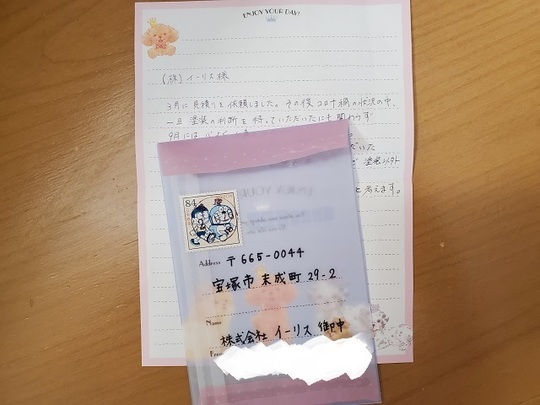 ENJOY YOUR DAY!
(株) イーリス様
3月に見積りを依頼しました。その後コロナ禍の状況の中、
一旦塗装の判断を待っていただいたにも関わらず
9月には
いた
塗装以外
と考えます。
84
Address 〒665-0044
宝塚市 末成町 29-2
Name
株式会社 イーリス 御中
From